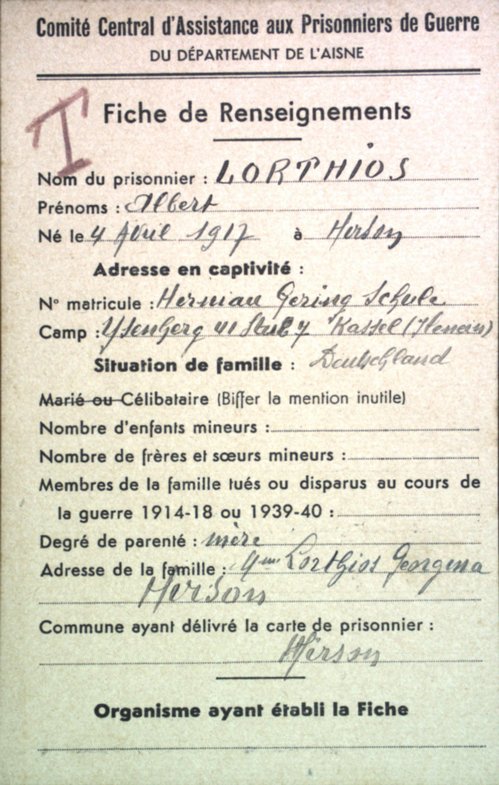 Comité Central d'Assistance aux Prisonniers de Guerre
DU DÉPARTEMENT DE L'AISNE
T
Fiche de Renseignements
Nom du prisonnier : LORTHIOS
Prénoms : Albert
Né le 4 Avril 1917 à Herson
Adresse en captivité :
N° matricule : Herman Gering Schule
Camp : Kassel
Situation de famille : Deutschland
Marié ou Célibataire (Biffer la mention inutile)
Nombre d'enfants mineurs :
Nombre de frères et sœurs mineurs :
Membres de la famille tués ou disparus au cours de
la guerre 1914-18 ou 1939-40 :
Degré de parenté : mère
Adresse de la famille : Lorthios
Hirson
Commune ayant délivré la carte de prisonnier :
Hirson
Organisme ayant établi la Fiche